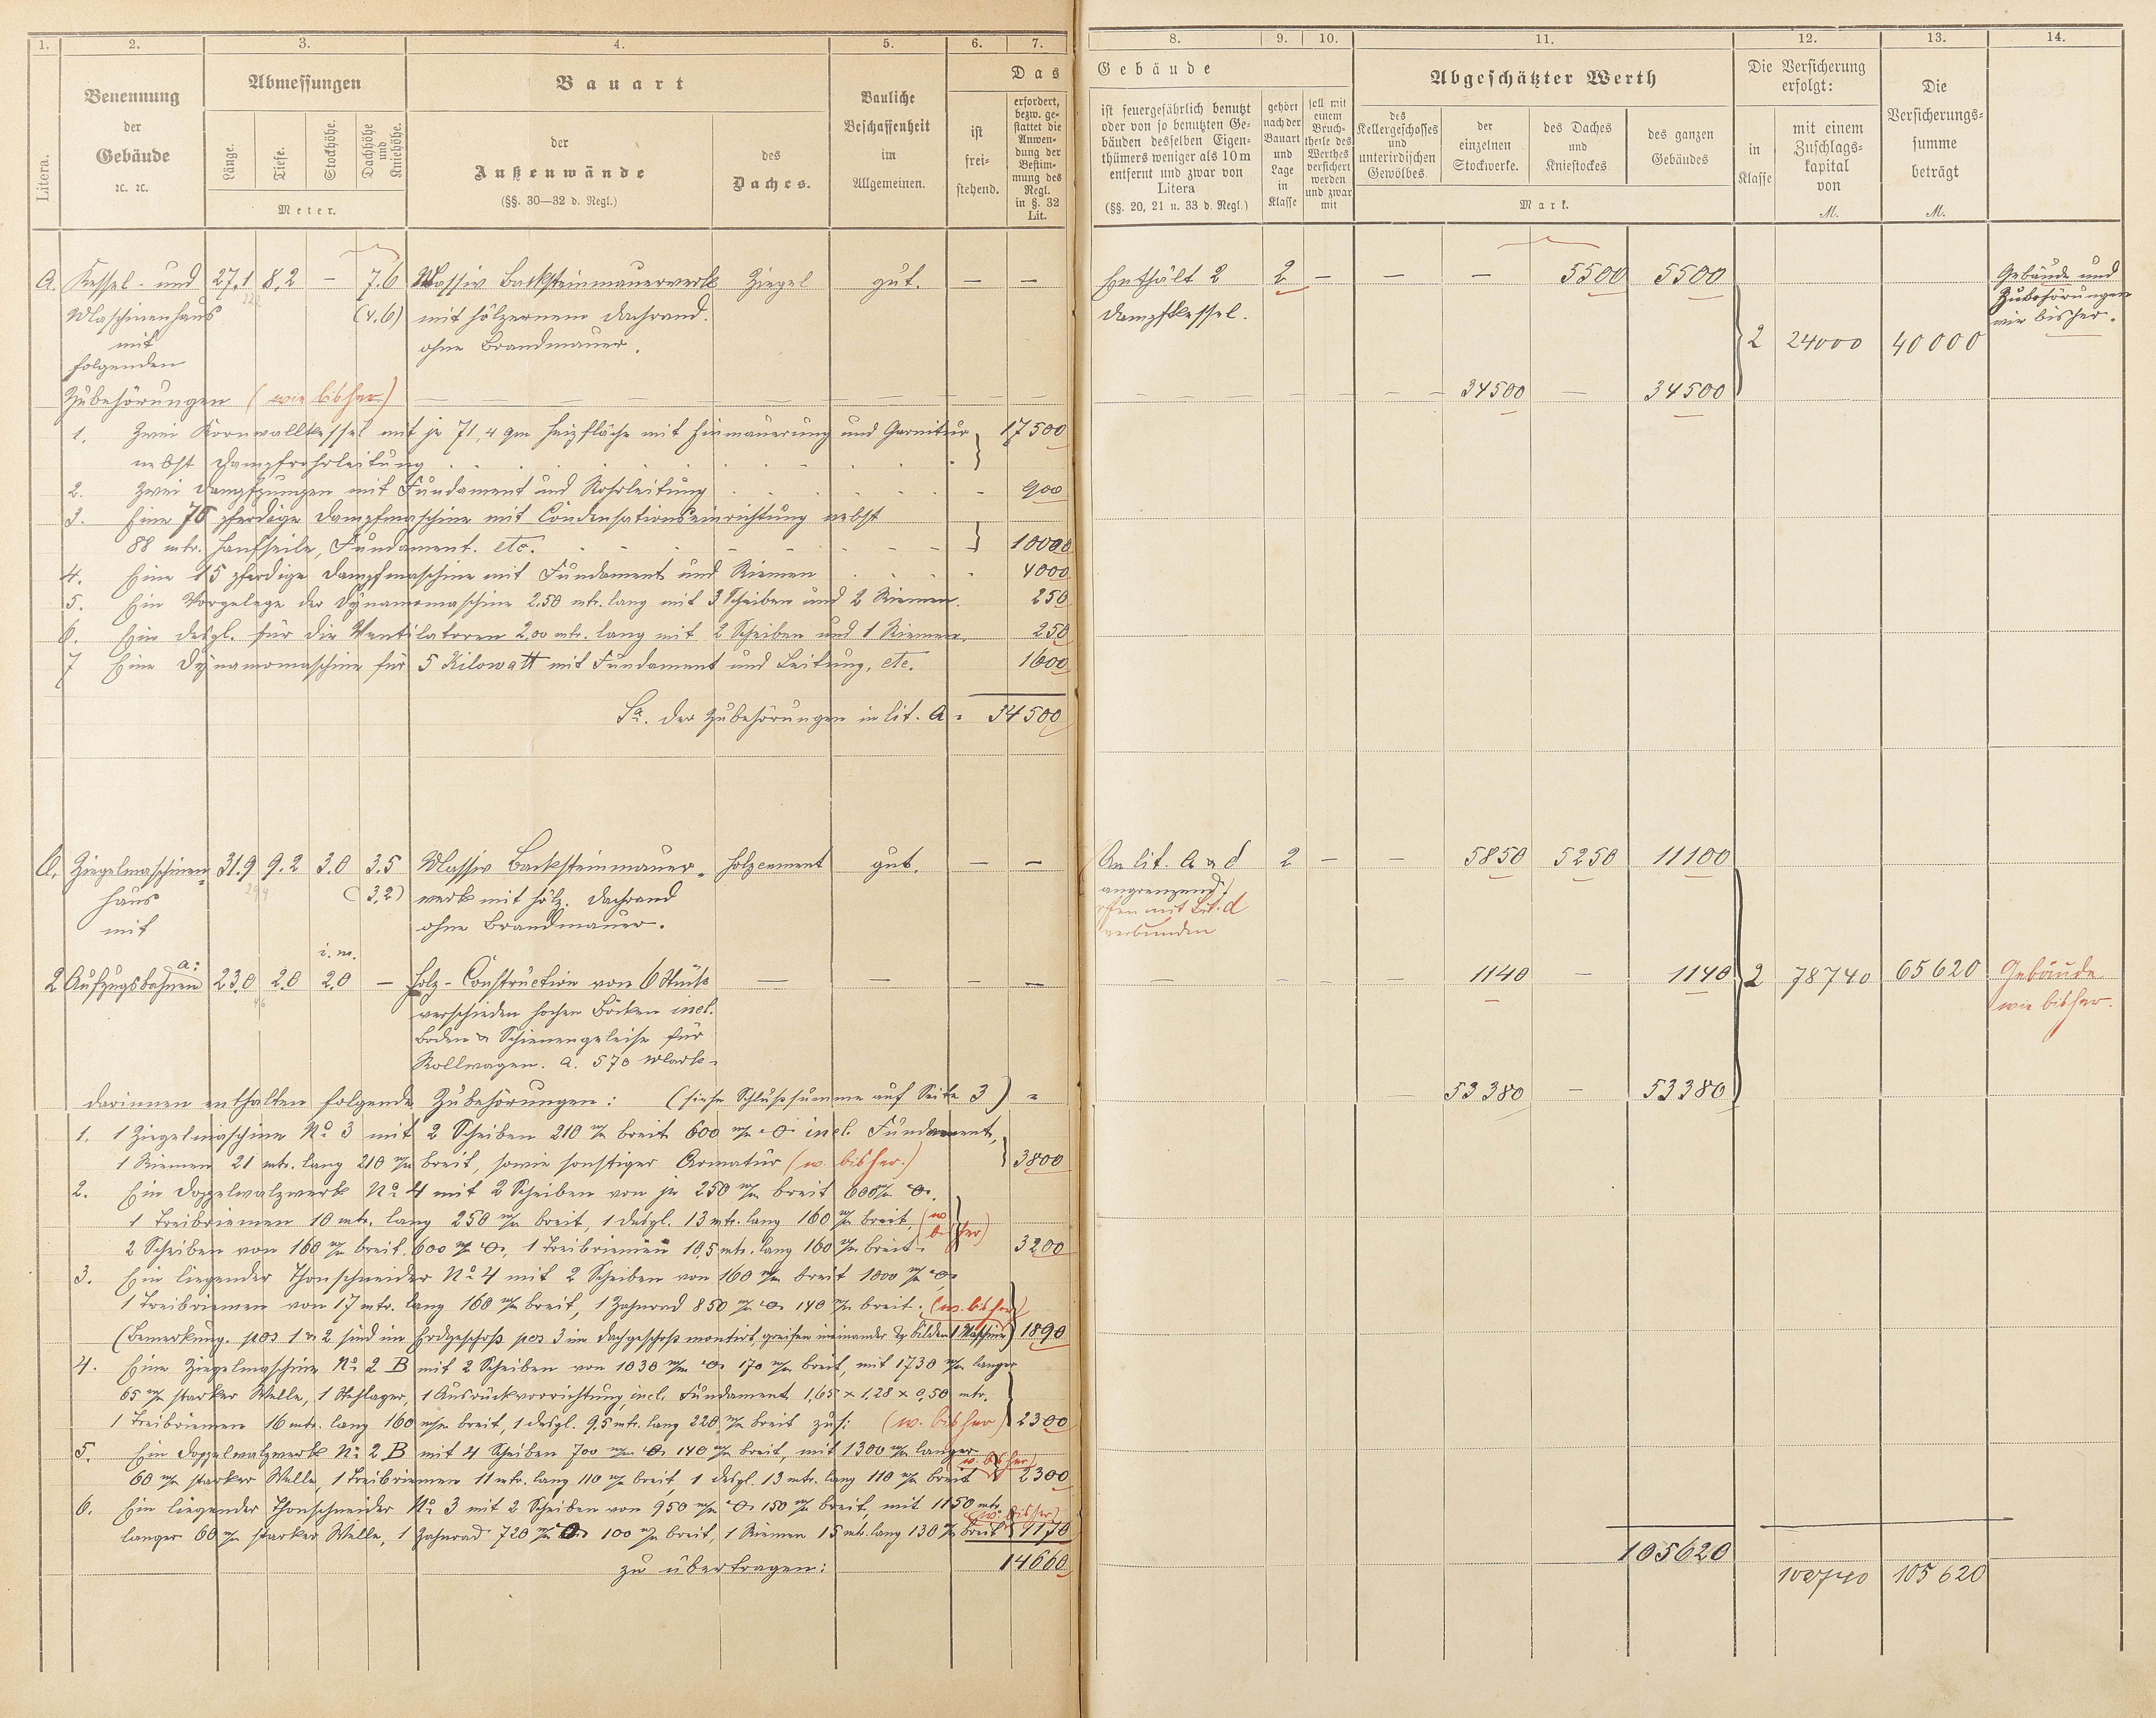 1. 2. 3. 4. 5. 6. 7.
Litera.
Benennung
der
Gebäude
ꝛc. ꝛc.
Abmessungen
Länge. Tiefe. Stockhöhe. Dachhöhe und Kniehöhe.
Meter.
Bauart
der
Außenwände
(§§. 30—32 d. Regl.)
des
Daches.
Bauliche
Beschaffenheit
im
Allgemeinen.
Das
ist
frei-
stehend.
erfordert,
bezw. ge-
stattet die
Anwen-
dung der
Bestim-
mung des
Regl.
in §. 32
Lit.
A. Kessel- und 27,1 8,2 – 7.6 Massiv Backsteinmauerwerk Ziegel gut. — —
Maschinenhaus (4.6) mit hölzernem Dachrand.
mit ohne Brandmauer.
folgenden
Zubehörungen (wie bisher)
1. Zwei Kornwallkessel mit je 71,4 qm Heizfläche mit Einmauerung und Garnitur 17500
nebst Dampfrohrleitung
2. Zwei Dampfpumpen mit Fundament und Rohrleitung 900
3. Eine 70 pferdige Dampfmaschine mit Condensationseinrichtung nebst
88 mtr. Hanfseile, Fundament. etc. 10000
4. Eine 15 pferdige Dampfmaschine mit Fundament und Riemen 4000
5. Ein Vorgelege der Dynamomaschine 2.50 mtr. lang mit 3 Scheiben und 2 Riemen. 250
6. Ein desgl. für die Ventilatoren 2,00 mtr. lang mit 2 Scheiben und 1 Riemen. 250
7 Eine Dynamomaschine für 5 Kilowatt mit Fundament und Leitung, etc. 1600
Sa. der Zubehörungen in lit. A = 34500
Ziegelmaschinen- 31.9 9.2 3.0 3.5 Massiv Backsteinmauer- Holzcement gut. — —
haus (3,2) werk mit hölz. Dachrand
mit ohne Brandmauer.
a: i. m.
2 Aufzugsbahnen 23.0 2.0 2.0 – Holz-Construction von 6 Stück — — — —
verschieden hohen Böcken incl.
Boden & Schienengeleise für
Rollwagen. a. 570 Mark
darinnen enthalten folgende Zubehörungen: (siehe Schlußsumme auf Seite 3)
1. 1 Ziegelmaschine No 3 mit 2 Scheiben 210 m/m breit 600 m/m incl. Fundament,
1 Riemen 21 mtr. lang 210 m/m breit, sowie sonstiger Armatur (w. bisher.) 3800
2. Ein Doppelwalzwerk No 4 mit 2 Scheiben von je 250 m/m breit 600 m/m
1 Treibriemen 10 mtr. lang 250 m/m breit, 1 desgl. 13 mtr. lang 160 m/m breit, (w
bisher)
2 Scheiben von 160 m/m breit, 600 m/m, 1 Treibriemen 10,5 mtr. lang 160 m/m breit 3200
3. Ein liegender Thonschneider No 4 mit 2 Scheiben von 160 m/m breit 1000 m/m
1 Treibriemen von 17 mtr. lang 160 m/m breit, 1 Zahnrad 850 m/m 140 m/m breit. (w. bisher)
(Bemerkung. pos 1 & 2 sind im Erdgeschoß pos 3 im Dachgeschoß montirt, greifen ineinander & bilden 1 Maschine) 1890
4. Eine Ziegelmaschine No 2 B mit 2 Scheiben von 1030 m/m 170 m/m breit, mit 1730 m/m langer
65 m/m starker Welle, 1 Stehlager, 1 Ausrückvorrichtung, incl. Fundament 1,65 × 1,28 × 0,50 mtr.
1 Treibriemen 16 mtr. lang 160 m/m breit, 1 desgl. 9.5 mtr. lang 220 m/m breit zus: (w. bisher) 2300
5. Ein Doppelwalzwerk No 2 B mit 4 Scheiben 700 m/m 140 m/m breit, mit 1300 m/m langer
(w. bisher)
60 m/m starker Welle, 1 Treibriemen 11 mtr. lang 110 m/m breit, 1 desgl. 13 mtr. lang 110 m/m breit 2300
6. Ein liegender Thonschneider No 3 mit 2 Scheiben von 950 m/m 150 m/m breit, mit 1150 mtr.
(w. bisher)
langer 60 m/m starker Welle, 1 Zahnrad 720 m/m 100 m/m breit, 1 Riemen 15 mtr. lang 130 m/m breit 1170
zu übertragen: 14660
8. 9. 10. 11. 12. 13. 14.
Gebäude
ist feuergefährlich benutzt
oder von so benutzten Ge-
bäuden desselben Eigen-
thümers weniger als 10 m
entfernt und zwar von
Litera
(§§. 20, 21 u. 33 d. Regl.)
gehört
nach der
Bauart
und
Lage
in
Klasse
soll mit
einem
Bruch-
theile des
Werthes
versichert
werden
und zwar
mit
Abgeschätzter Werth
des
Kellergeschosses
und
unterirdischen
Gewölbes.
der
einzelnen
Stockwerke.
des Daches
und
Kniestockes
des ganzen
Gebäudes
Mark.
Die Versicherung
erfolgt:
in
Klasse
mit einem
Zuschlags-
kapital
von
M.
Die
Versicherungs-
summe
beträgt
M.
Enthält 2 2 – — — 5500 5500
Dampfkessel.
2 24000 40000
Gebäude und
Zubehörungen
wie bisher.
34500 — 34500
An lit. A & d 2 – — 5850 5250 11100
angrenzend,
offen mit Lit. d
verbunden
1140 — 1140 2 78740 65620
Gebäude
wie bisher.
53380 — 53380
105620
102740 105620